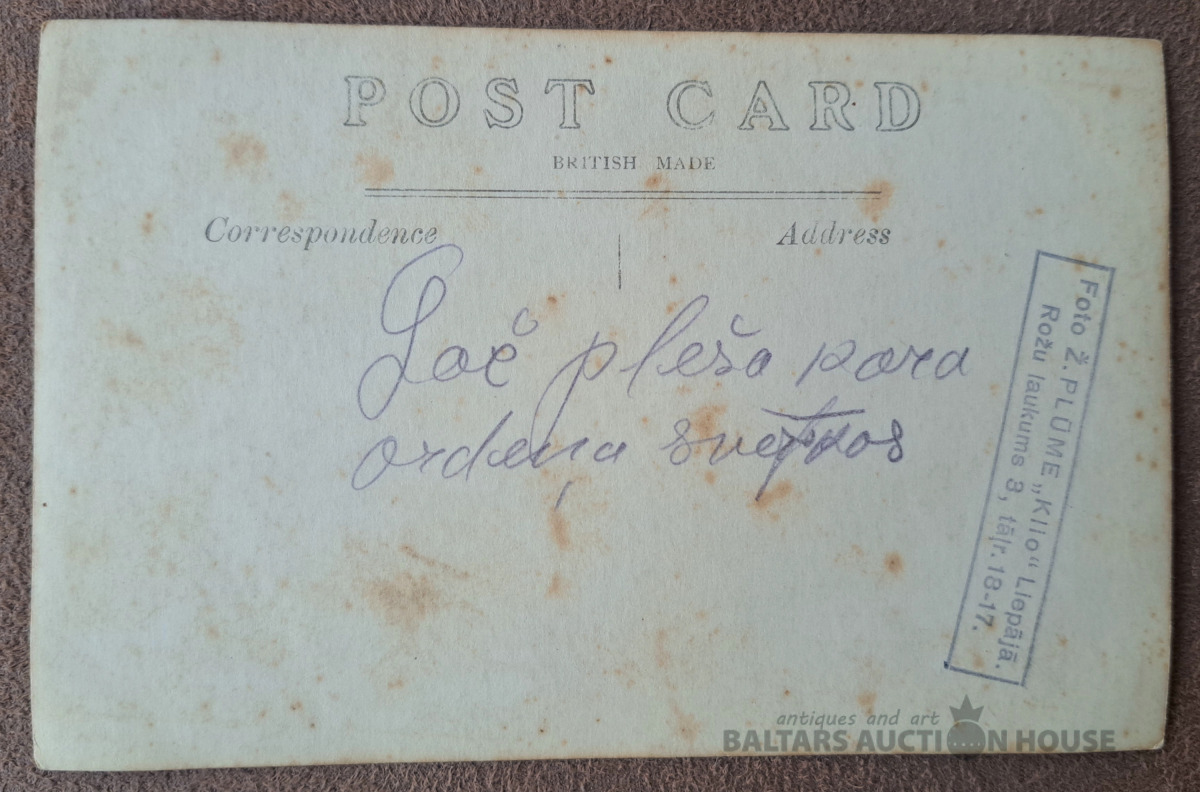 POST CARD
BRITISH MADE
Correspondence
Address
Lāč plēša kara
ordeņa svētkos
Foto Ž. PLŪME „Klio“ Liepājā.
Rožu laukums 3, tāļr. 18-17.
antiques and art
BALTARS AUCTION HOUSE